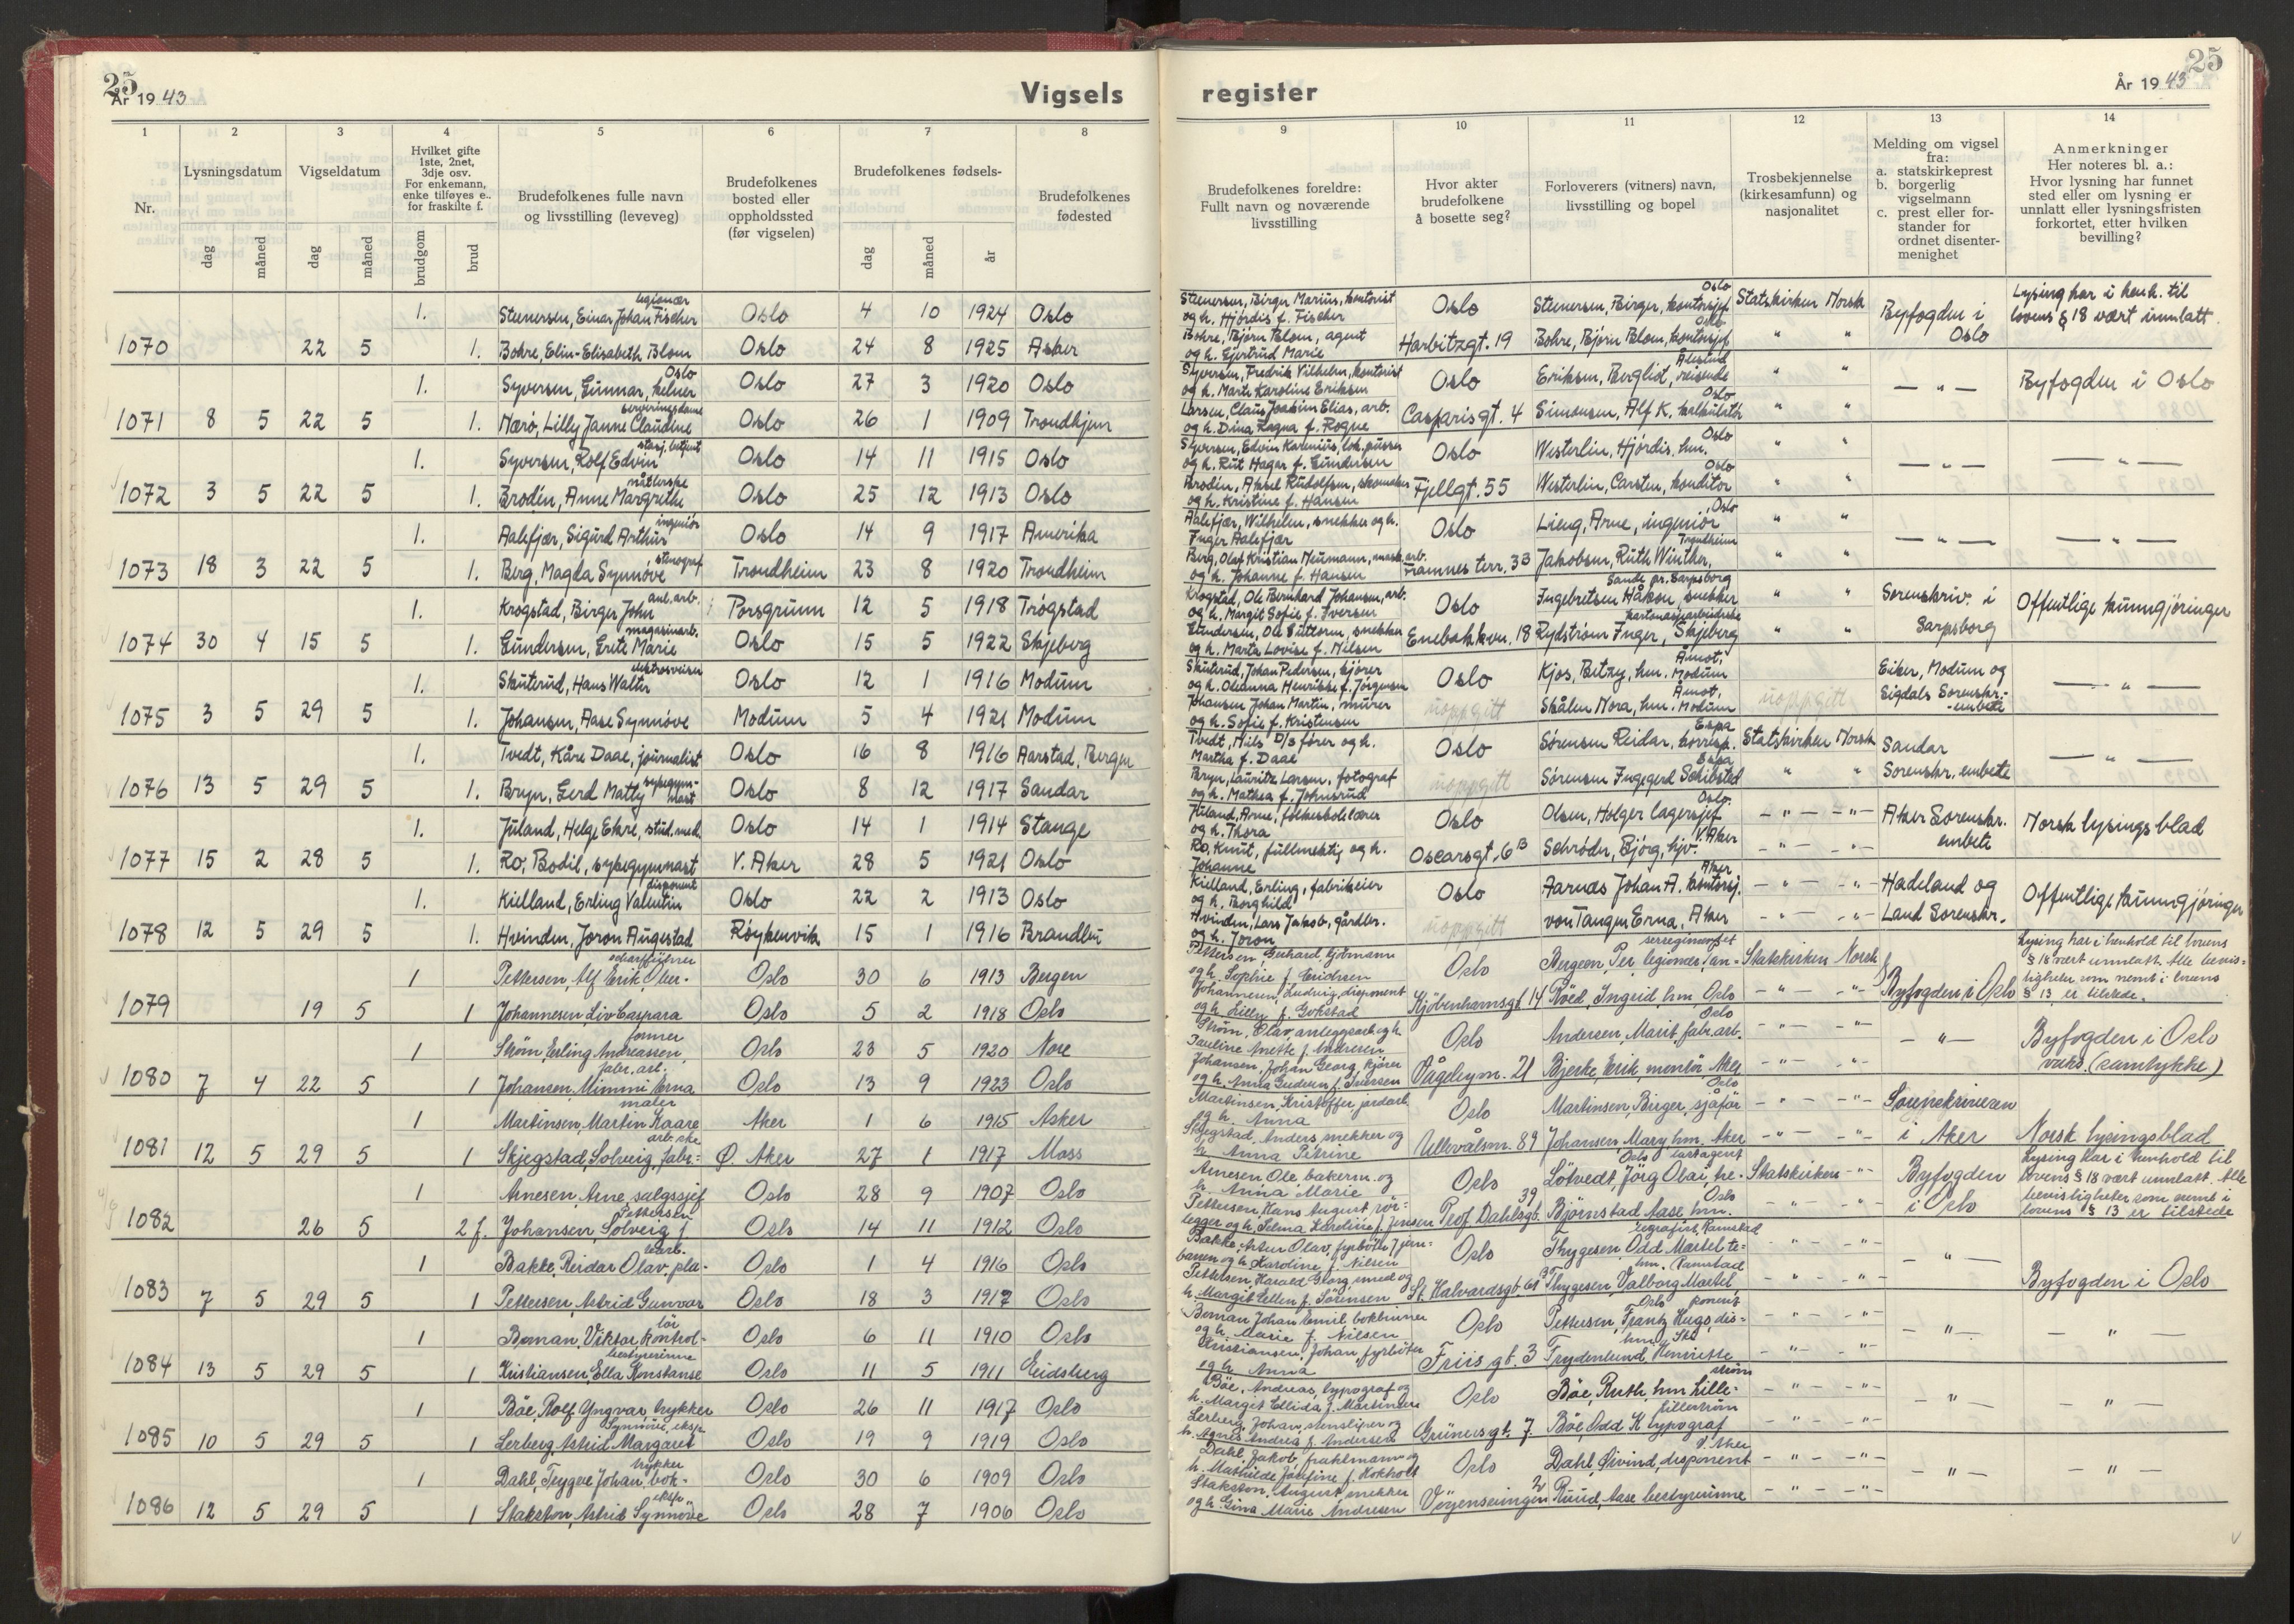 25
År 1943
Vigsels
register
År 1943
25
1 2 3 4 5 6 7 8
9 10 11 12 13 14
Nr.
Lysningsdatum
dag måned
Vigseldatum
dag måned
Hvilket gifte
1ste, 2net,
3dje osv.
For enkemann,
enke tilføyes e..
for fraskilte f.
brudgom brud
Brudefolkenes fulle navn
og livsstilling (leveveg)
Brudefolkenes
bosted eller
oppholdssted
(før vigselen)
Brudefolkenes fødsels-
dag måned år
Brudefolkenes
fødested
Brudefolkenes foreldre:
Fullt navn og noværende
livsstilling
Hvor akter
brudefolkene
å bosette seg?
Forloverers (vitners) navn,
livsstilling og bopel
Trosbekjennelse
(kirkesamfunn) og
nasjonalitet
Melding om vigsel
fra:
a. statskirkeprest
b. borgerlig
vigselmann
c. prest eller for-
stander for
ordnet disenter-
menighet
Anmerkninger
Her noteres bl. a.:
Hvor lysning har funnet
sted eller om lysning er
unnlatt eller lysningsfristen
forkortet, etter hvilken
bevilling?
legionær
1. Steenersen, Einar Johan Fischer Oslo 4 10 1924 Oslo
1070 22 5 1. Bohre, Elin-Elisabeth Blom Oslo 24 8 1925 Asker
Oslo
1. Syversen, Gunnar, kelner Oslo 27 3 1920 Oslo
serveringsdame
1071 8 5 22 5 1. Nærø, Lilly Janne Claudine Oslo 26 1 1909 Trondhjem
stasj. betjent
1. Syversen, Rolf Edvin Oslo 14 11 1915 Oslo
1072 3 5 22 5 1. Brodin, Anne Margrethe Oslo 25 12 1913 Oslo
ingeniør
1. Aalefjær, Sigurd Arthur Oslo 14 9 1917 Amerika
stenograf
1073 18 3 22 5 1. Berg, Magda Synnøve Trondheim 23 8 1920 Trondheim
anl. arb.
1. Krogstad, Birger John Porsgrunn 12 5 1918 Trøgstad
magasinarb.
1074 30 4 15 5 1. Gundersen, Grete Marie Oslo 15 5 1922 Skjeberg
elektrosveiser
1. Skuterud, Hans Walter Oslo 12 1 1916 Modum
1075 3 5 29 5 1. Johansen, Aase Synnøve Modum 5 4 1921 Modum
1. Tvedt, Kåre Daae, journalist Oslo 16 8 1916 Aarstad, Bergen
sykegym-
nast
1076 13 5 29 5 1. Bryn, Gerd Matty Oslo 8 12 1917 Sandar
1. Juland, Helge Ekre, stud. med. Oslo 14 1 1914 Stange
1077 15 2 28 5 1. Ro, Bodil, sykegymnast V. Aker 28 5 1921 Oslo
disponent
1. Kielland, Erling Valentin Oslo 22 2 1913 Oslo
1078 12 5 29 5 1. Hvinden, Joron Augestad Røykenvik 15 1 1916 Brandbu
scharfführer
1 Pettersen, Alf Erik, Ober- Oslo 30 6 1913 Bergen
1079 19 5 1 Johannesen, Liv Caspara Oslo 5 2 1918 Oslo
former
1 Strøm, Erling Andreassen, Oslo 23 5 1920 Nore
fabr. arb.
1080 7 4 22 5 1 Johansen, Mimmi Erna Oslo 13 9 1923 Oslo
maler
1 Martinsen, Martin Kaare Aker 1 6 1915 Asker
arb.ske
1081 12 5 29 5 1 Skjegstad, Solveig, fabr- Ø. Aker 27 1 1917 Moss
1 Arnesen, Arne, salgssjef Oslo 28 9 1907 Oslo
Pettersen
1082 26 5 2 f. Johansen, Solveig f. Oslo 14 11 1912 Oslo
1 Bakke, Reidar Olav, pla- Oslo 1 4 1916 Oslo
1083 7 5 29 5 1 Pettersen, Astrid Gunvor Oslo 18 3 1917 Oslo
lør
1 Boman, Viktor, kontrol- Oslo 6 11 1910 Oslo
bestyrerinne
1084 13 5 29 5 1 Kristiansen, Ella Konstanse Oslo 11 5 1911 Eidsberg
1 Bøe, Rolf Yngvar, trykker Oslo 26 11 1917 Oslo
Synnøve, eksp.
1085 10 5 29 5 1 Lerberg, Astrid Margaret Oslo 19 9 1919 Oslo
trykker
1 Dahl, Trygve Johan, bok- Oslo 30 6 1909 Oslo
eksp.
1086 12 5 29 5 1 Stakston, Astrid Synnøve Oslo 28 7 1906 Oslo
Steenersen, Birger Marius, kontorist
og h. Hjørdis f. Fischer
Oslo Steenersen, Birger, kontorsjef Oslo Statskirken Norsk
Byfogden i
Oslo
Lysing har i henh. til
lovens § 18 vært unnlatt.
Bohre, Bjørn Blom, agent
og h. Gjertrud Marie
Harbitzgt. 19 Bohre, Bjørn Blom, kontorsjef Oslo " "
Syversen, Fredrik Vilhelm, kontorist
og h. Marte Karoline Eriksen
Oslo Eriksen, Bergliot, reisende " "
— " — Byfogden i Oslo
Larsen, Claus Joakim Elias, arb.
og h. Dina Ragna f. Rogne
Casparisgt. 4 Simonsen, Alf K. kalkulatør Oslo " "
Syversen, Edvin Karenius, lok. pusser
og h. Rut Hagar f. Gundersen
Oslo Westerlin, Hjørdis, hm. Oslo " "
— " — — " —
Brodin, Aksel Rudolfsen, skomaker
og h. Kristine f. Hansen
Fjellgt. 55 Westerlin, Carsten, konditor Oslo " "
Aalefjær, Wilhelm, snekker og h.
Inger Aalefjær
Oslo Lieng, Arne, ingeniør, Oslo " "
— " — — " —
Berg, Olaf Kristian Neumann, mask. arb.
og h. Johanne f. Hansen
Framnes terr. 3B Jakobsen, Ruth Winther, Trondheim " "
Krogstad, Ole Bernhard Johansen, arb.
og h. Margit Sofie f. Iversen
Oslo Ingebretsen Håkon, snekker Sande pr. Sarpsborg " "
Sorenskriv. i
Sarpsborg
Offentlige kunngjøringer
Gundersen, Ole Guttorm, snekker
og h. Marta Lovise f. Nilsen
Enebakkvn. 18 Rydstrøm Inger, kartonasjearbeiderske Skjeberg " "
Skuterud, Johan Pedersen, kjører
og h. Oleanna Henrikke f. Jørgensen
Oslo Kjos, Betzy, hm. Åmot, Modum
Eiker, Modum og
Sigdals Sorenskr.-
embete
— " —
Johansen Johan Martin, murer
og h. Sofie f. Kristensen
uoppgitt Skålen Nora, hm. Åmot, Modum uoppgitt
Tvedt, Nils D/S fører og h.
Martha f. Daae
Oslo Sørensen Reidar, korresp. Espa Statskirken Norsk
Sandar
Sorenskr. embete
— " —
Bryn, Lauritz Larsen, fotograf
og h. Mathea f. Johnsrud
uoppgitt Sørensen Ingegerd Schibsted Espa " "
Juland, Arne, folkeskolelærer
og h. Thora
Oslo Olsen, Holger lagersjef Oslo. - " - - " -
Aker Sorenskr.
embete
Norsk lysingsblad
Ro, Knut, fullmektig og h.
Johanne
Oscarsgt. 6 B Schrøder, Bjørg, hjv. V. Aker - " - - " -
Kielland, Erling, fabrikeier
og h. Borghild
Oslo Aarnæs Johan A. kontorsj. Aker - " - - " -
Hadeland og
Land Sorenskr.
Offentlige kunngjøringer
Hvinden, Lars Jakob, gårdbr.
og h. Joron
uoppgitt von Tangen Erna, Aker - " - - " -
Pettersen, Gerhard, tjømann
og h. Sophie f. Erichsen
Oslo Bergeen, Per, legionær, Statskirken Norsk
Byfogden i Oslo
Lysing har i henhold til lovens
§ 18 vært unnlatt. Alle bevis-
ligheter som nevnt i lovens
§ 13 er tilstede.
Johannesen, Ludvig, disponent
og h. Lilly f. Gokstad
Kjøbenhavnsgt. 14 Røed, Ingrid hm Oslo - " - - " -
Strøm, Olav, anleggsarb. og h.
Pauline Anette f. Andresen
Oslo Andersen, Marit, fabr. arb. Oslo - " - - " -
— " —
Byfogden i Oslo
(samtykke)
Johansen, Johan Georg, kjører
og h. Anna Gudrun f. Iversen
Vågeleym. 21 Bjerke, Erik, montør, Aker - " - - " -
Martinsen, Kristoffer jordarb.
og h. Anna
Oslo Martinsen, Birger, sjåfør Oslo - " - - " -
Sorenskriveren
i Aker
Norsk lysingsblad
Skjegstad, Anders, snekker og
h. Anna Petrine
Ullevålsvn. 89 Johansen, Mary hm. Aker - " - - " -
Arnesen Ole, bakerm. og
h. Anna Marie
Oslo Løtvedt, Jørg Olai, Statskirken - " -
Byfogden
i Oslo
Lysing har i henhold til
lovens § 18 vært unnlatt. Alle
bevisligheter som nevnt i
lovens § 13 er tilstede
Pettersen, Hans August, rør-
legger og h. Selma Karoline f. Jensen
Prof. Dahlsgt. 39 Bjørnstad, Aase, hm. Oslo - " - - " -
Bakke, Artur Olav, fyrbøter
og h. Karoline f. Nilsen
Oslo Thygesen, Odd Martel te-
legrafist, Ramstad - " - - " -
— " —
Byfogden i Oslo
Pettersen, Harald Georg, smed og
h. Margit Ellen f. Sørensen
St. Halvardsgt. 61 Thygesen, Valborg Martel, hm. Ramstad - " - - " -
Boman Johan Emil, bokbinner
og h. Marie f. Nilsen
Oslo Pettersen, Frantz Hugo, dis-
ponent Oslo - " - - " -
— " — — " —
Kristiansen, Johan, fyrbøter
og h. Anna
Friis gt. 3 Trydenlund, Henriette hm. Ski - " - - " -
Bøe, Andreas, typograf og
h. Margit Ellida f. Martinsen
Oslo Bøe, Ruth, hm Lille-
strøm - " - - " -
— " — — " —
Lerberg, Johan, stensliper og
h. Agnes Andrea f. Andersen
Grünersgt. 7. Bøe, Odd K typograf Lillestrøm - " - - " -
Dahl, Jakob, fraktmann og
h. Mathilde Josefine f. Kokholt
Oslo Dahl, Øivind, disponent V. Aker - " - - " -
— " — — " —
Stakston, August, snekker
og h. Gina Marie Andresen
Vøyensvingen 2 Ruud, Aase bestyrerinne - " - - " -